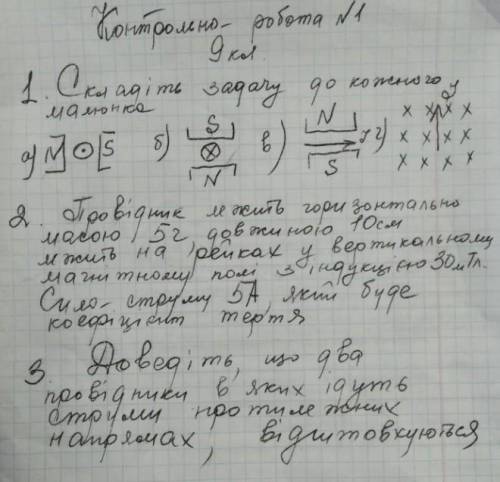 Контрольно- робота №1
9 кл.
1. Складіть задачу до кожного
малюнка
а) N S б) S N в) N S г)
2. Провідник лежить горизонтально
масою 5г, довжиною 10см
лежить на рейках у вертикальному
магнітному полі з індукцією 30мТл.
Сила струму 5А, який буде
коефіцієнт тертя
3. Доведіть, що два
провідники в яких ідуть
струми протилежних
напрямах, відштовхуються